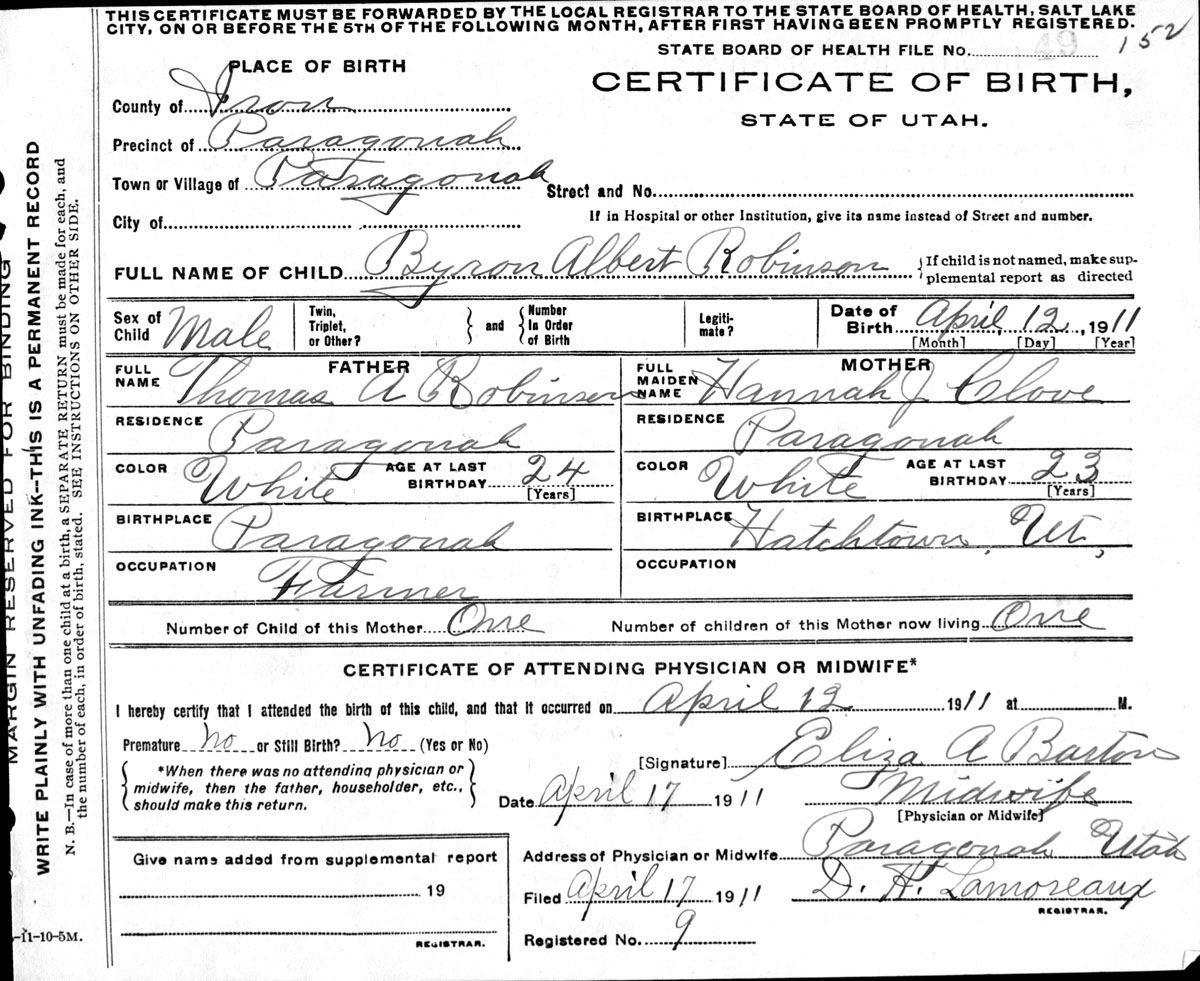 THIS CERTIFICATE MUST BE FORWARDED BY THE LOCAL REGISTRAR TO THE STATE BOARD OF HEALTH, SALT LAKE
CITY, ON OR BEFORE THE 5TH OF THE FOLLOWING MONTH, AFTER FIRST HAVING BEEN PROMPTLY REGISTERED.
STATE BOARD OF HEALTH FILE No. 49 152
PLACE OF BIRTH
CERTIFICATE OF BIRTH,
STATE OF UTAH.
County of Iron
Precinct of Paragonah
Town or Village of Paragonah
Street and No.
City of
If in Hospital or other Institution, give its name instead of Street and number.
FULL NAME OF CHILD Byron Albert Robinson
{If child is not named, make sup-
plemental report as directed
Sex of Child Male
Twin, Triplet, or Other? } and { Number In Order of Birth
Legiti-mate?
Date of Birth April 12, 1911
[Month] [Day] [Year]
FATHER
FULL NAME Thomas A Robinson
MOTHER
FULL MAIDEN NAME Hannah J Clove
RESIDENCE Paragonah
RESIDENCE Paragonah
COLOR White AGE AT LAST BIRTHDAY 24 [Years]
COLOR White AGE AT LAST BIRTHDAY 23 [Years]
BIRTHPLACE Paragonah
BIRTHPLACE Hatchtown, Ut,
OCCUPATION Farmer
OCCUPATION
Number of Child of this Mother One Number of children of this Mother now living One
CERTIFICATE OF ATTENDING PHYSICIAN OR MIDWIFE*
I hereby certify that I attended the birth of this child, and that it occurred on April 12 1911 at M.
Premature no or Still Birth? no (Yes or No)
[Signature] Eliza A Barton
{ *When there was no attending physician or
midwife, then the father, householder, etc.,
should make this return. }
Date April 17 1911 Midwife
[Physician or Midwife]
Give name added from supplemental report
19
REGISTRAR.
Address of Physician or Midwife Paragonah Utah
Filed April 17 1911 D. H. Lamoreaux
REGISTRAR.
Registered No. 9
MARGIN RESERVED FOR BINDING
WRITE PLAINLY WITH UNFADING INK--THIS IS A PERMANENT RECORD
N. B.—In case of more than one child at a birth, a SEPARATE RETURN must be made for each, and
the number of each, in order of birth, stated. SEE INSTRUCTIONS ON OTHER SIDE.
-11-10-5M.